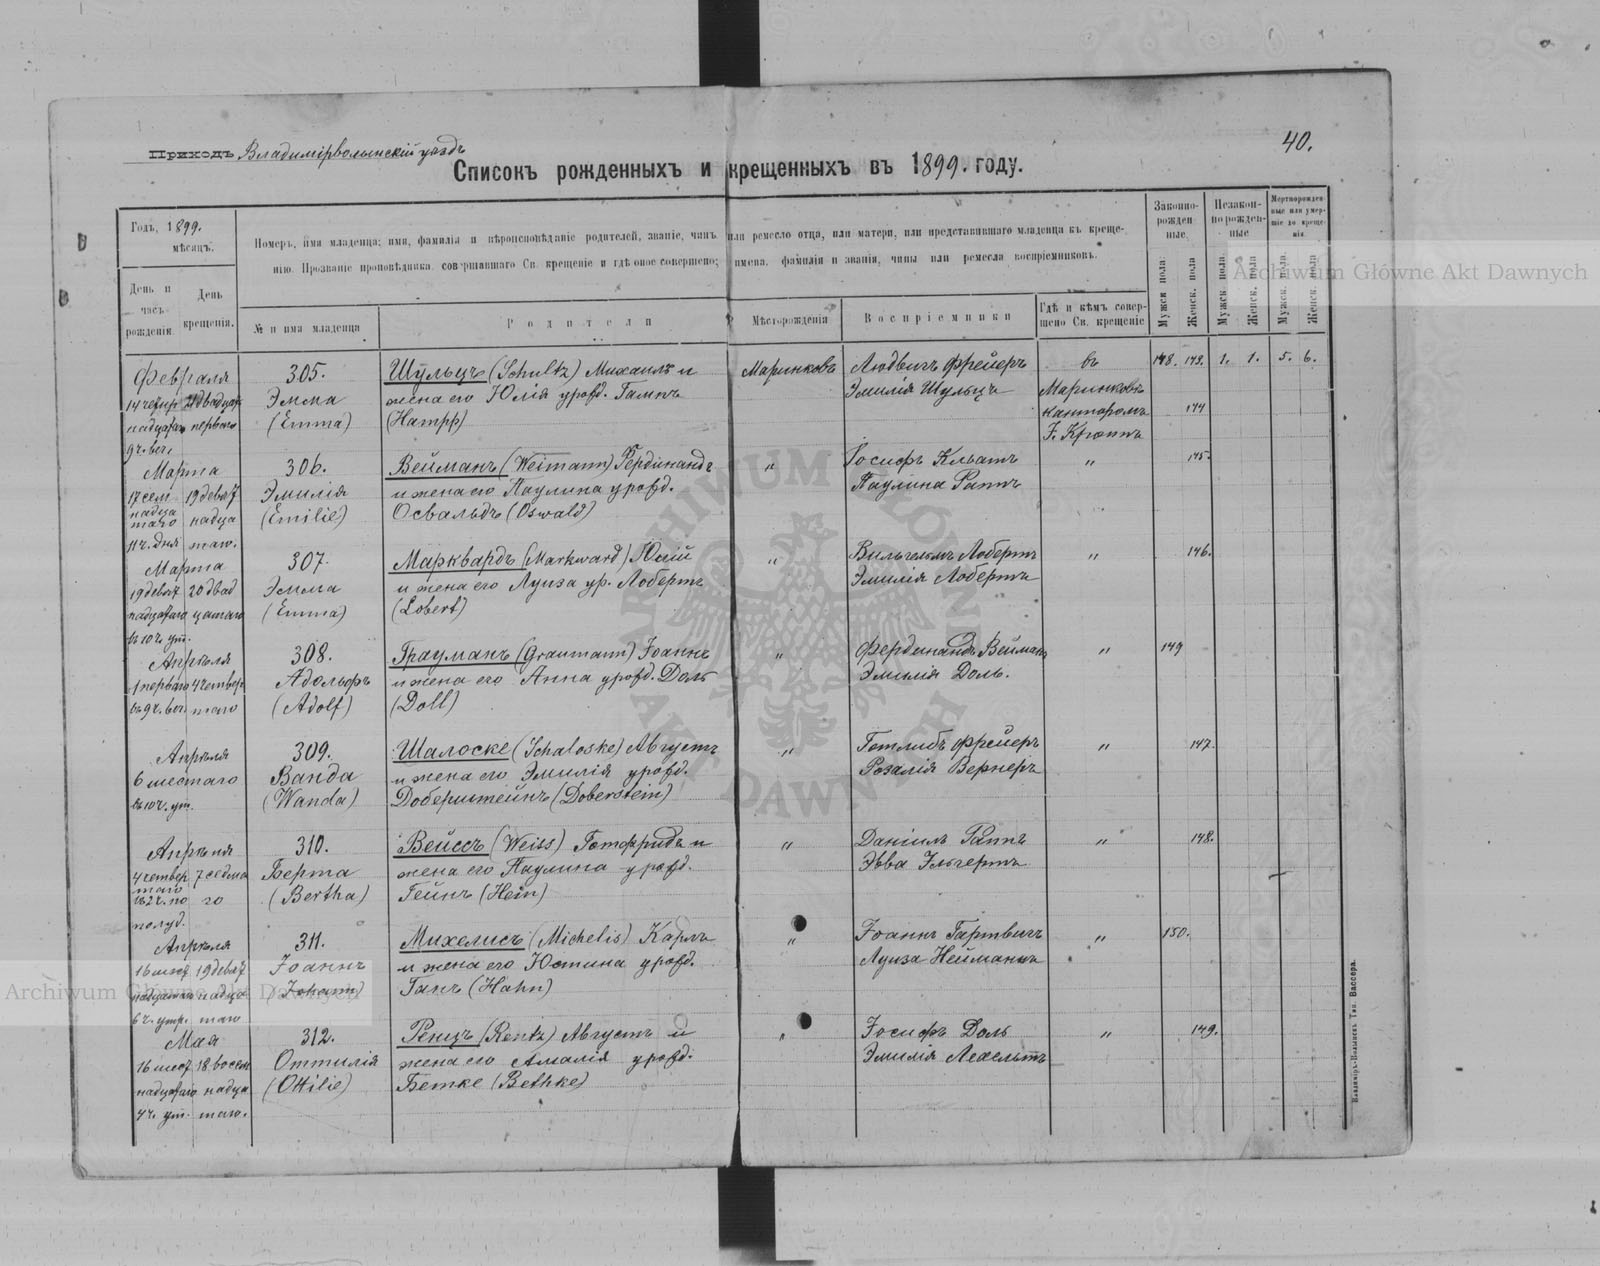 Приходъ Владимірволынскій уѣздъ
40.
Списокъ рожденныхъ и крещенныхъ въ 1899. году.
Годъ, 1899.
мѣсяцъ.
День и часъ рожденія.
День крещенія.
Номеръ, имя младенца; имя, фамилія и вѣроисповѣданіе родителей, званіе, чинъ или ремесло отца, или матери, или представившаго младенца къ креще-
нію. Прозваніе проповѣдника, совершавшаго Св. крещеніе и гдѣ оное совершено; имена, фамиліи и званія, чины или ремесла воспріемниковъ.
№ и имя младенца
Родители
Мѣсторожденія
Воспріемники
Гдѣ и кѣмъ совер-
шено Св. крещеніе
Законно-
рожден-
ные.
Незакон-
норожден-
ные
Мертворожден-
ные или умер-
шіе до креще-
нія.
Мужск. пола.
Женск. пола
Мужск. пола.
Женск. пола
Мужск. пола.
Женск. пола.
Февраля 305. Шульцъ (Schultz) Михаилъ и Маринковъ Людвигъ Фрейеръ въ 148. 143. 1. 1. 5. 6.
Эмма жена его Юлія урожд. Гампъ Эмилія Шульцъ Маринковѣ
надцатаго перваго (Emma) (Hampp) канторомъ 144
9 ч. веч. Марта 306. Вейманъ (Weimann) Фердинандъ " Іосифъ Клатъ " 145.
17 сем 19 девят Эмилія и жена его Паулина урожд. Паулина Раппъ
надца
таго надца (Emilie) Освальдъ (Oswald)
11 ч. дня таго.
Марта 307. Марквардъ (Markward) Юлій " Вильгельмъ Лобертъ " 146.
19 девят 20 двад Эмма и жена его Луиза ур. Лобертъ Эмилія Лобертъ
надцатаго цатаго (Emma) (Lobert)
въ 10 ч. ут.
Апрѣля 308. Грауманъ (Graumann) Іоаннъ " Фердинандъ Вейманъ " 149
1 перваго 4 четвер Адольфъ и жена его Анна урожд. Доль Эмилія Доль.
въ 9 ч. веч. таго (Adolf) (Doll)
Апрѣля 309. Шалоске (Schaloske) Августъ " Готлибъ Фрейеръ " 147.
6 шестаго Ванда и жена его Эмилія урожд. Розалія Вернеръ
въ 10 ч. ут. (Wanda) Доберштейнъ (Doberstein)
Апрѣля 310. Вейссъ (Weiss) Готфридъ и " Даніилъ Раппъ " 148.
4 четвер 7 седма Берта жена его Паулина урожд. Эва Эльгертъ
таго
въ 2 ч. по го (Bertha) Гейнъ (Hein)
полуд.
Апрѣля 311. Михелисъ (Michelis) Карлъ " Іоаннъ Гартвигъ " 150.
16 шест 19 девят Іоаннъ и жена его Юстина урожд. Луиза Нейманъ
надцатаго надца (Johann) Ганъ (Hahn)
6 ч. утр. таго
Мая 312. Ренцъ (Rentz) Августъ и " Іосифъ Доль " 149.
16 шест 18 восем Оттилія жена его Амалія урожд. Эмилія Лехельтъ
надцатаго надца (Ottilie) Бетке (Bethke)
4 ч. ут. таго.
Archiwum Główne Akt Dawnych
Archiwum Główne Akt Dawnych
ARCHIWUM GŁÓWNE AKT DAWNYCH
Владиміръ-Волынскъ Тип. Вассера.